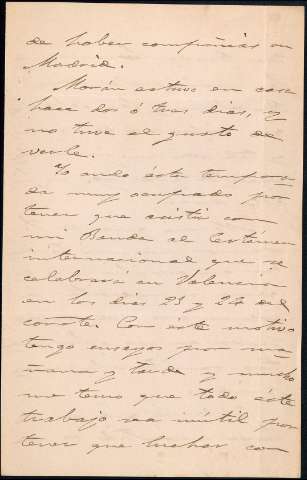 de haber compañias en
Madrid.
Morán estuvo en casa
hace dos ó tres dias, y
no tuve el gusto de
verle.
Yo ando ésta tempora-
da muy ocupado por
tener que asistir con
mi Banda al Certámen
internacional que se
celebrará en Valencia
en los dias 23 y 24 del
corrte. Con éste motivo
tengo ensayos por ma-
ñana y tarde y mucho
me temo que todo éste
trabajo sea inútil por
tener que luchar con